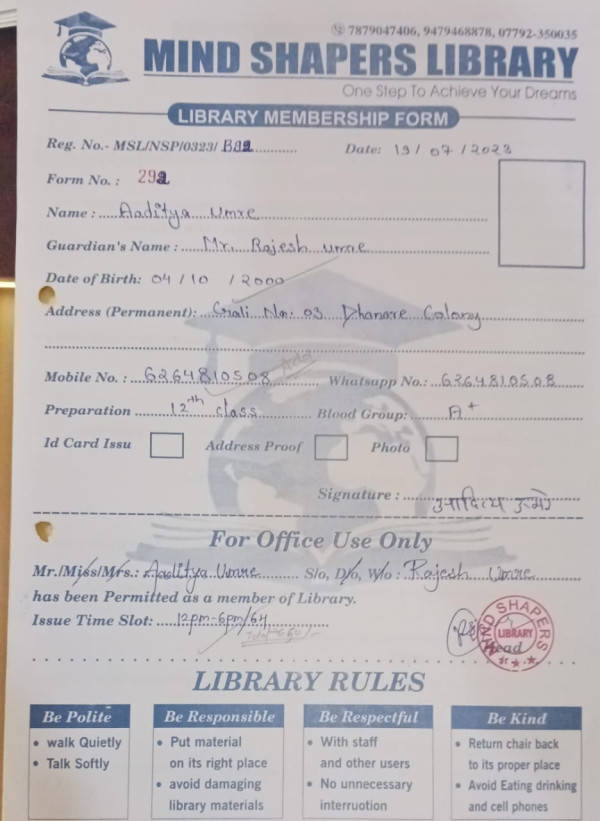 7879047406, 9479468878, 07792-350035
MIND SHAPERS LIBRARY
One Step To Achieve Your Dreams
LIBRARY MEMBERSHIP FORM
Reg. No.- MSL/NSP/0323/
Date: 19/07/2023
Form No. : 292
Name : Aaditya Umre
Guardian's Name : Mr. Rajesh Umre
Date of Birth: 04/10/2000
Address (Permanent): Gali No: 03 Dhanare Colony
Mobile No. : 6264810508 Whatsapp No.: 6264810508
Preparation 12th class Blood Group: A+
Id Card Issu Address Proof Photo
Signature : आदित्य उमरे
For Office Use Only
Mr./Miss/Mrs.: Aaditya Umre S/o, D/o, W/o : Rajesh Umre
has been Permitted as a member of Library.
Issue Time Slot: 12pm-6pm/6H
MIND SHAPERS
LIBRARY
Head
LIBRARY RULES
Be Polite
• walk Quietly
• Talk Softly
Be Responsible
• Put material
on its right place
• avoid damaging
library materials
Be Respectful
• With staff
and other users
• No unnecessary
interruotion
Be Kind
• Return chair back
to its proper place
• Avoid Eating drinking
and cell phones